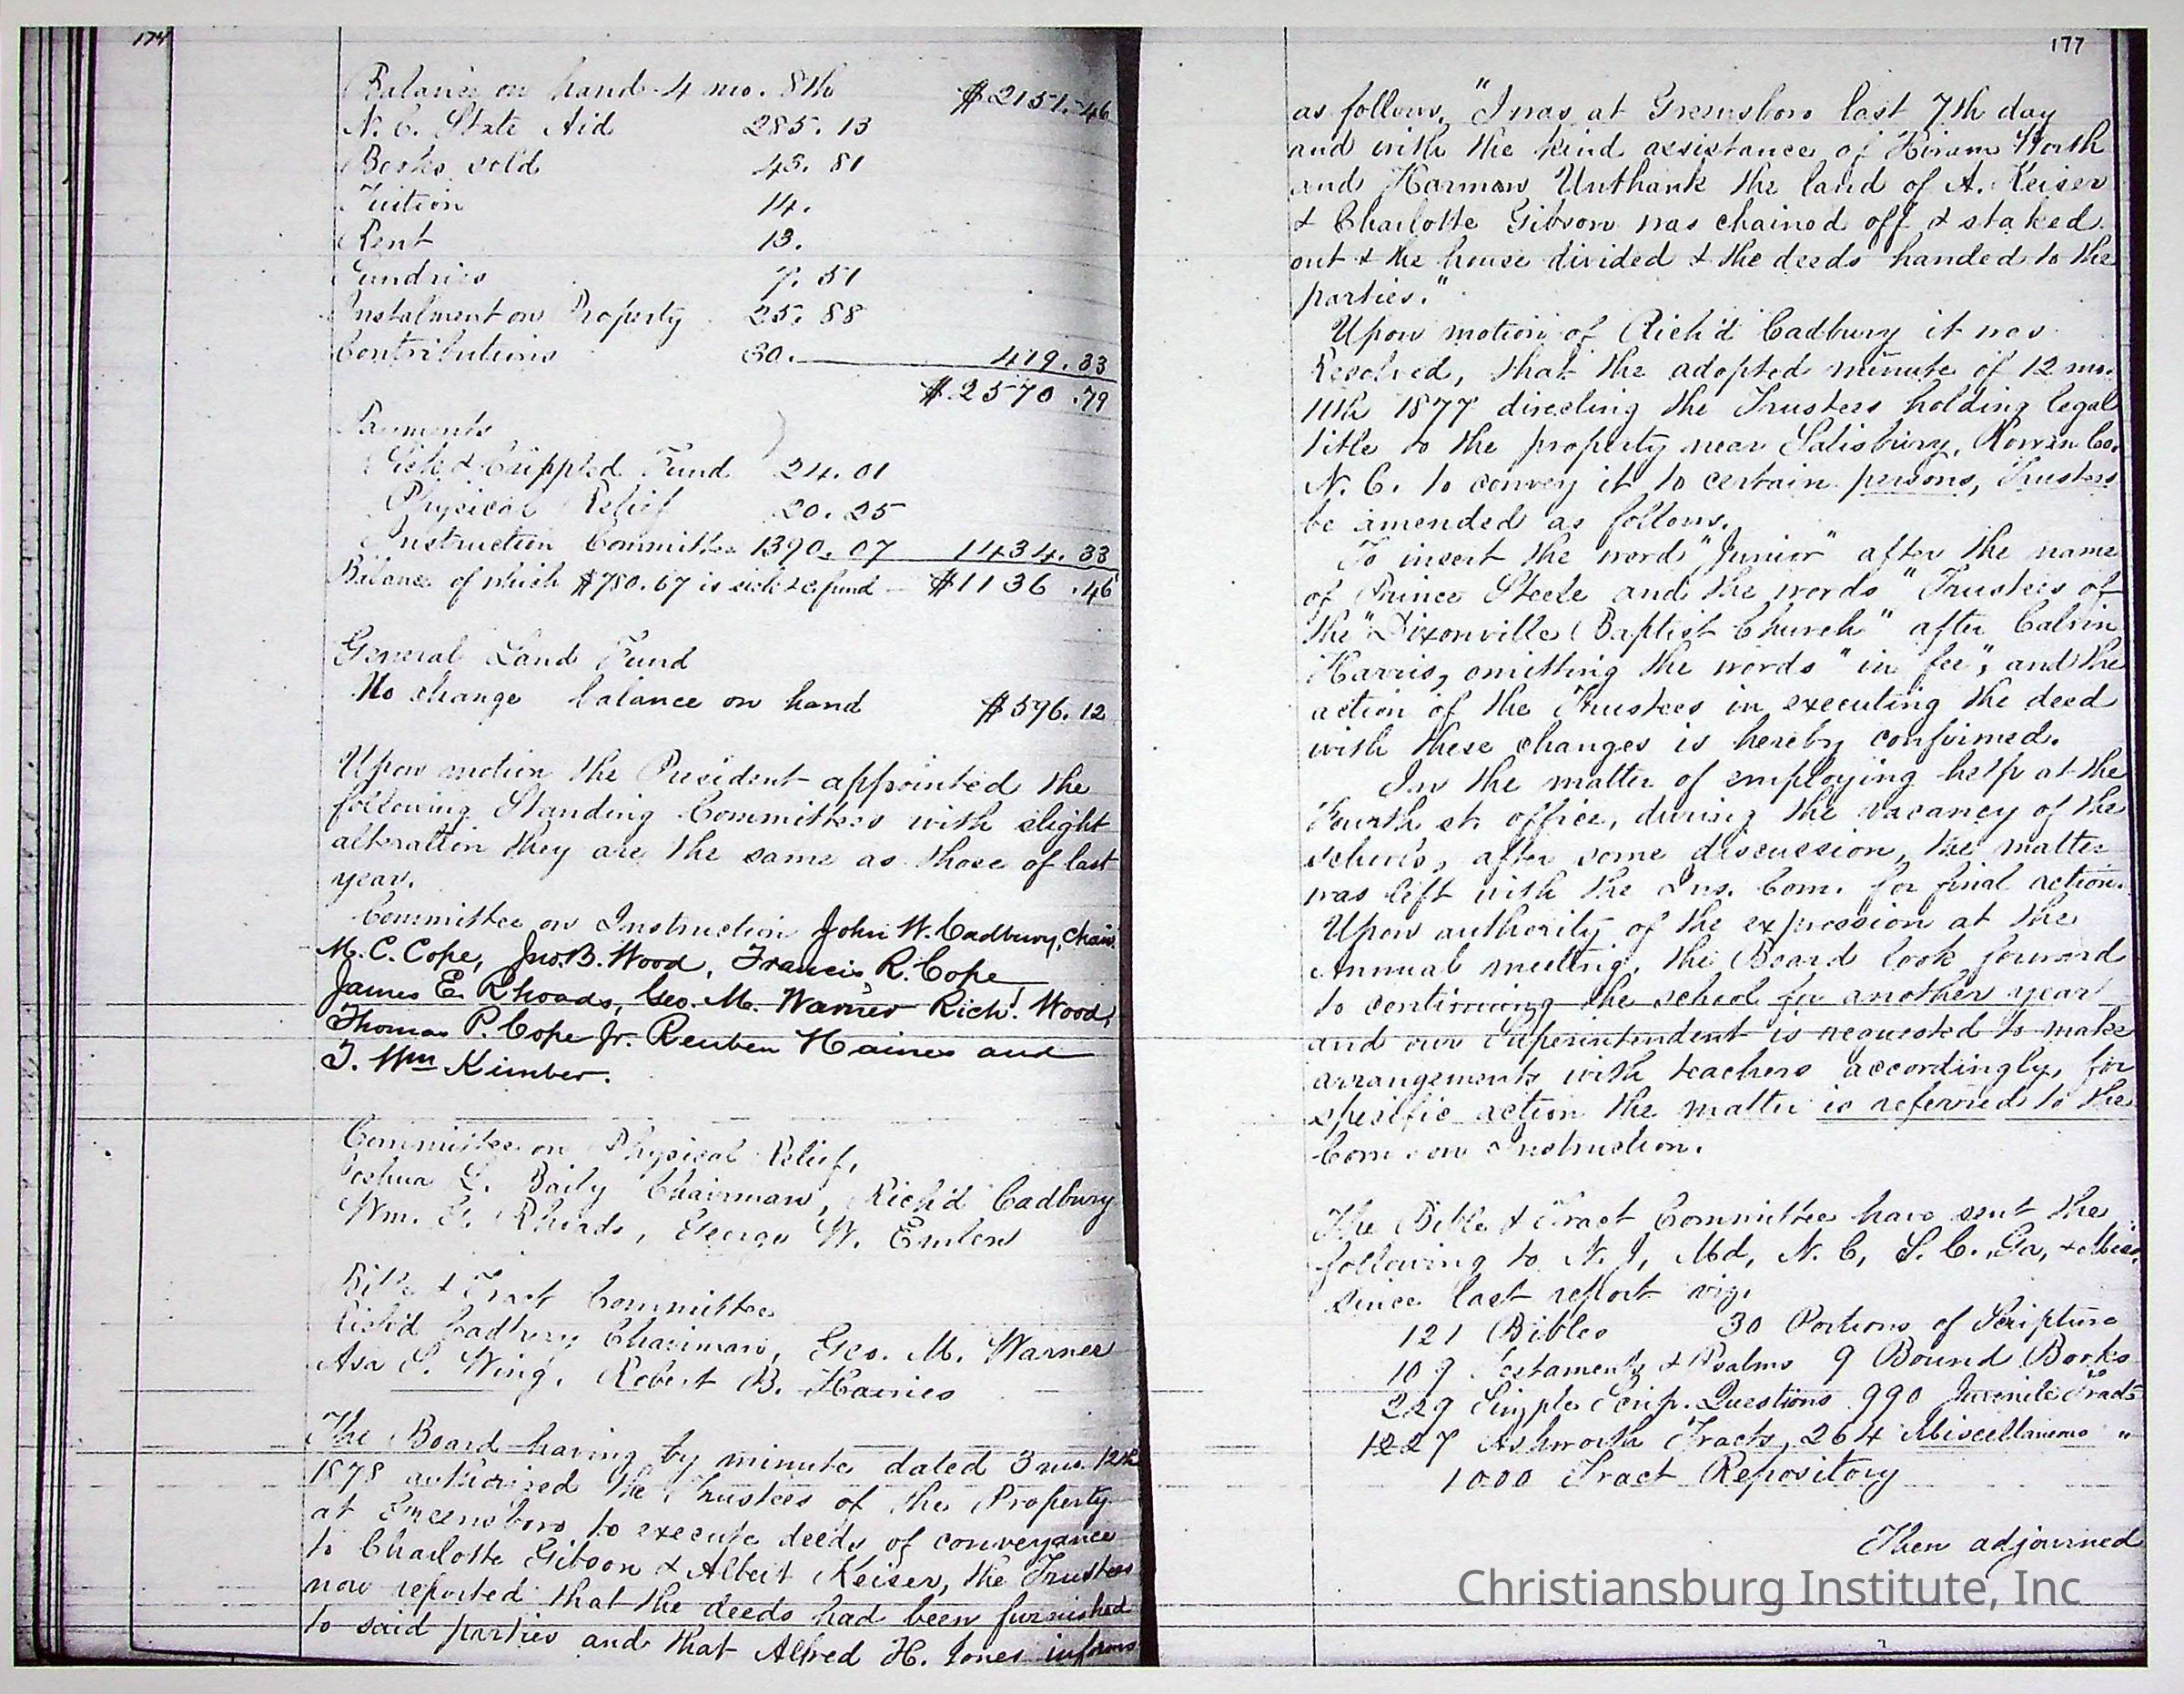 174
Balance on hand 4 mo. 8th $2151.46
N. C. State Aid 285. 13
Books sold 43. 81
Tuition 14.
Rent 13.
Sundries 7. 51
Instalment on Property 25. 88
Contributions 30. 419. 33
$2570.79
Payments
Sick & Crippled Fund 24.01
Physical Relief 20. 25
Instruction Committee 1390. 07 1434. 33
Balance of which $780.67 is sick &c fund $1136.46
General Land Fund
No change balance on hand $596.12
Upon motion the President appointed the
following Standing Committees with slight
alteration they are the same as those of last
year.
Committee on Instruction John W. Cadbury, Chair.
M. C. Cope, Jno. B. Wood, Francis R. Cope
James E. Rhoads, Geo. M. Warner Rich'd Wood,
Thomas P. Cope Jr. Reuben Haines and
T. Wm Kimber.
Committee on Physical Relief,
Joshua L. Baily Chairman, Rich'd Cadbury
Wm. G. Rhoads, George W. Emlen
Bible & Tract Committee
Rich'd Cadbury Chairman, Geo. M. Warner
Asa S. Wing, Robert B. Haines
The Board having by minute dated 3 mo. 12th
1878 authorized the Trustees of the Property
at Greensboro to execute deeds of conveyance
to Charlotte Gibson & Albert Keiser, the Trustees
now reported that the deeds had been furnished
to said parties and that Alfred H. Jones informs
177
as follows, "I was at Greensboro last 7th day
and with the kind assistance of Hiram Worth
and Harmon Unthank the land of A. Keiser
& Charlotte Gibson was chained off & staked
out & the house divided & the deeds handed to the
parties."
Upon motion of Rich'd Cadbury it was
Resolved, that the adopted minute of 12 mo.
11th 1877 directing the Trustees holding legal
title to the property near Salisbury, Rowan Co.
N. C. to convey it to certain persons, Trustees
be amended as follows.
To insert the word "Junior" after the name
of Prince Steele and the words "Trustees of
the "Dixonville Baptist Church" after Calvin
Harris, omitting the words "in fee", and the
action of the Trustees in executing the deed
with these changes is hereby confirmed.
In the matter of employing help at the
Fourth st. office, during the vacancy of the
schools, after some discussion, the matter
was left with the Ins. Com. for final action.
Upon authority of the expression at the
Annual meeting, the Board look forward
to continuing the school for another year
and our Superintendent is requested to make
arrangements with teachers accordingly, for
specific action the matter is referred to the
Com. on Instruction.
The Bible & Tract Committee have sent the
following to N. J, Md, N. C, S. C., Ga, & Miss.
since last report viz.
121 Bibles 30 Portions of Scripture
109 Testaments & Psalms 9 Bound Books
229 Simple Scrip. Questions 990 Juvenile Tracts
1227 Ashworth Tracts, 264 Miscellaneous "
1000 Tract Repository
Then adjourned
Christiansburg Institute, Inc